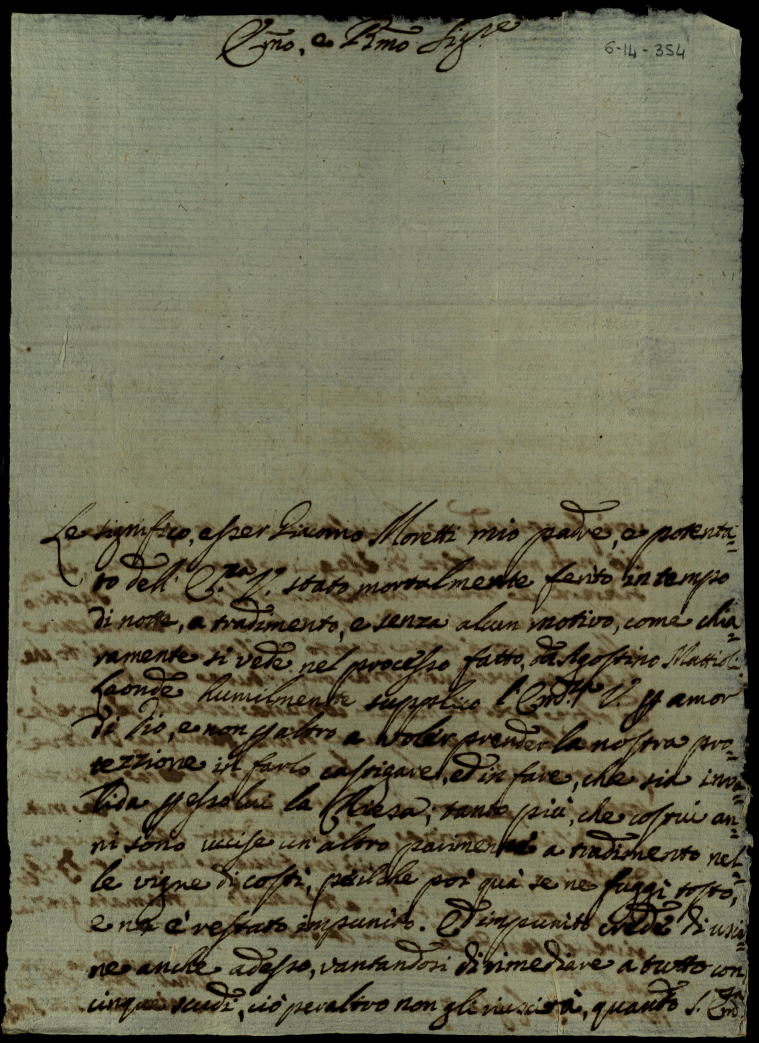 Emo, e Rmo Sigre
6-14-354
Le significo, esser Giacomo Moretti mio padre, e potenta-
to dell' E.za V. stato mortalmente ferito in tempo
di notte, a tradimento, e senza alcun motivo, come chia-
ramente si vede nel processo fatto, da Agostino Mattioli.
Laonde humilmente supplico l' V. p amor
di Dio, e non p altro a voler prender la nostra pro-
tezzione in farlo castigare, ed in fare, che sia inva-
lida p esso lui la Chiesa; tanto più, che costui an-
ni sono uccise un'altro parimente a tradimento nel-
le vigne di costì, perilche poi quà se ne fuggì tosto,
e ne è restato impunito. Ed impunito crede di usci-
ne anche adesso, vantandosi di rimediare a tutto con
cinque scudi, ciò peraltro non gli riuscirà, quando